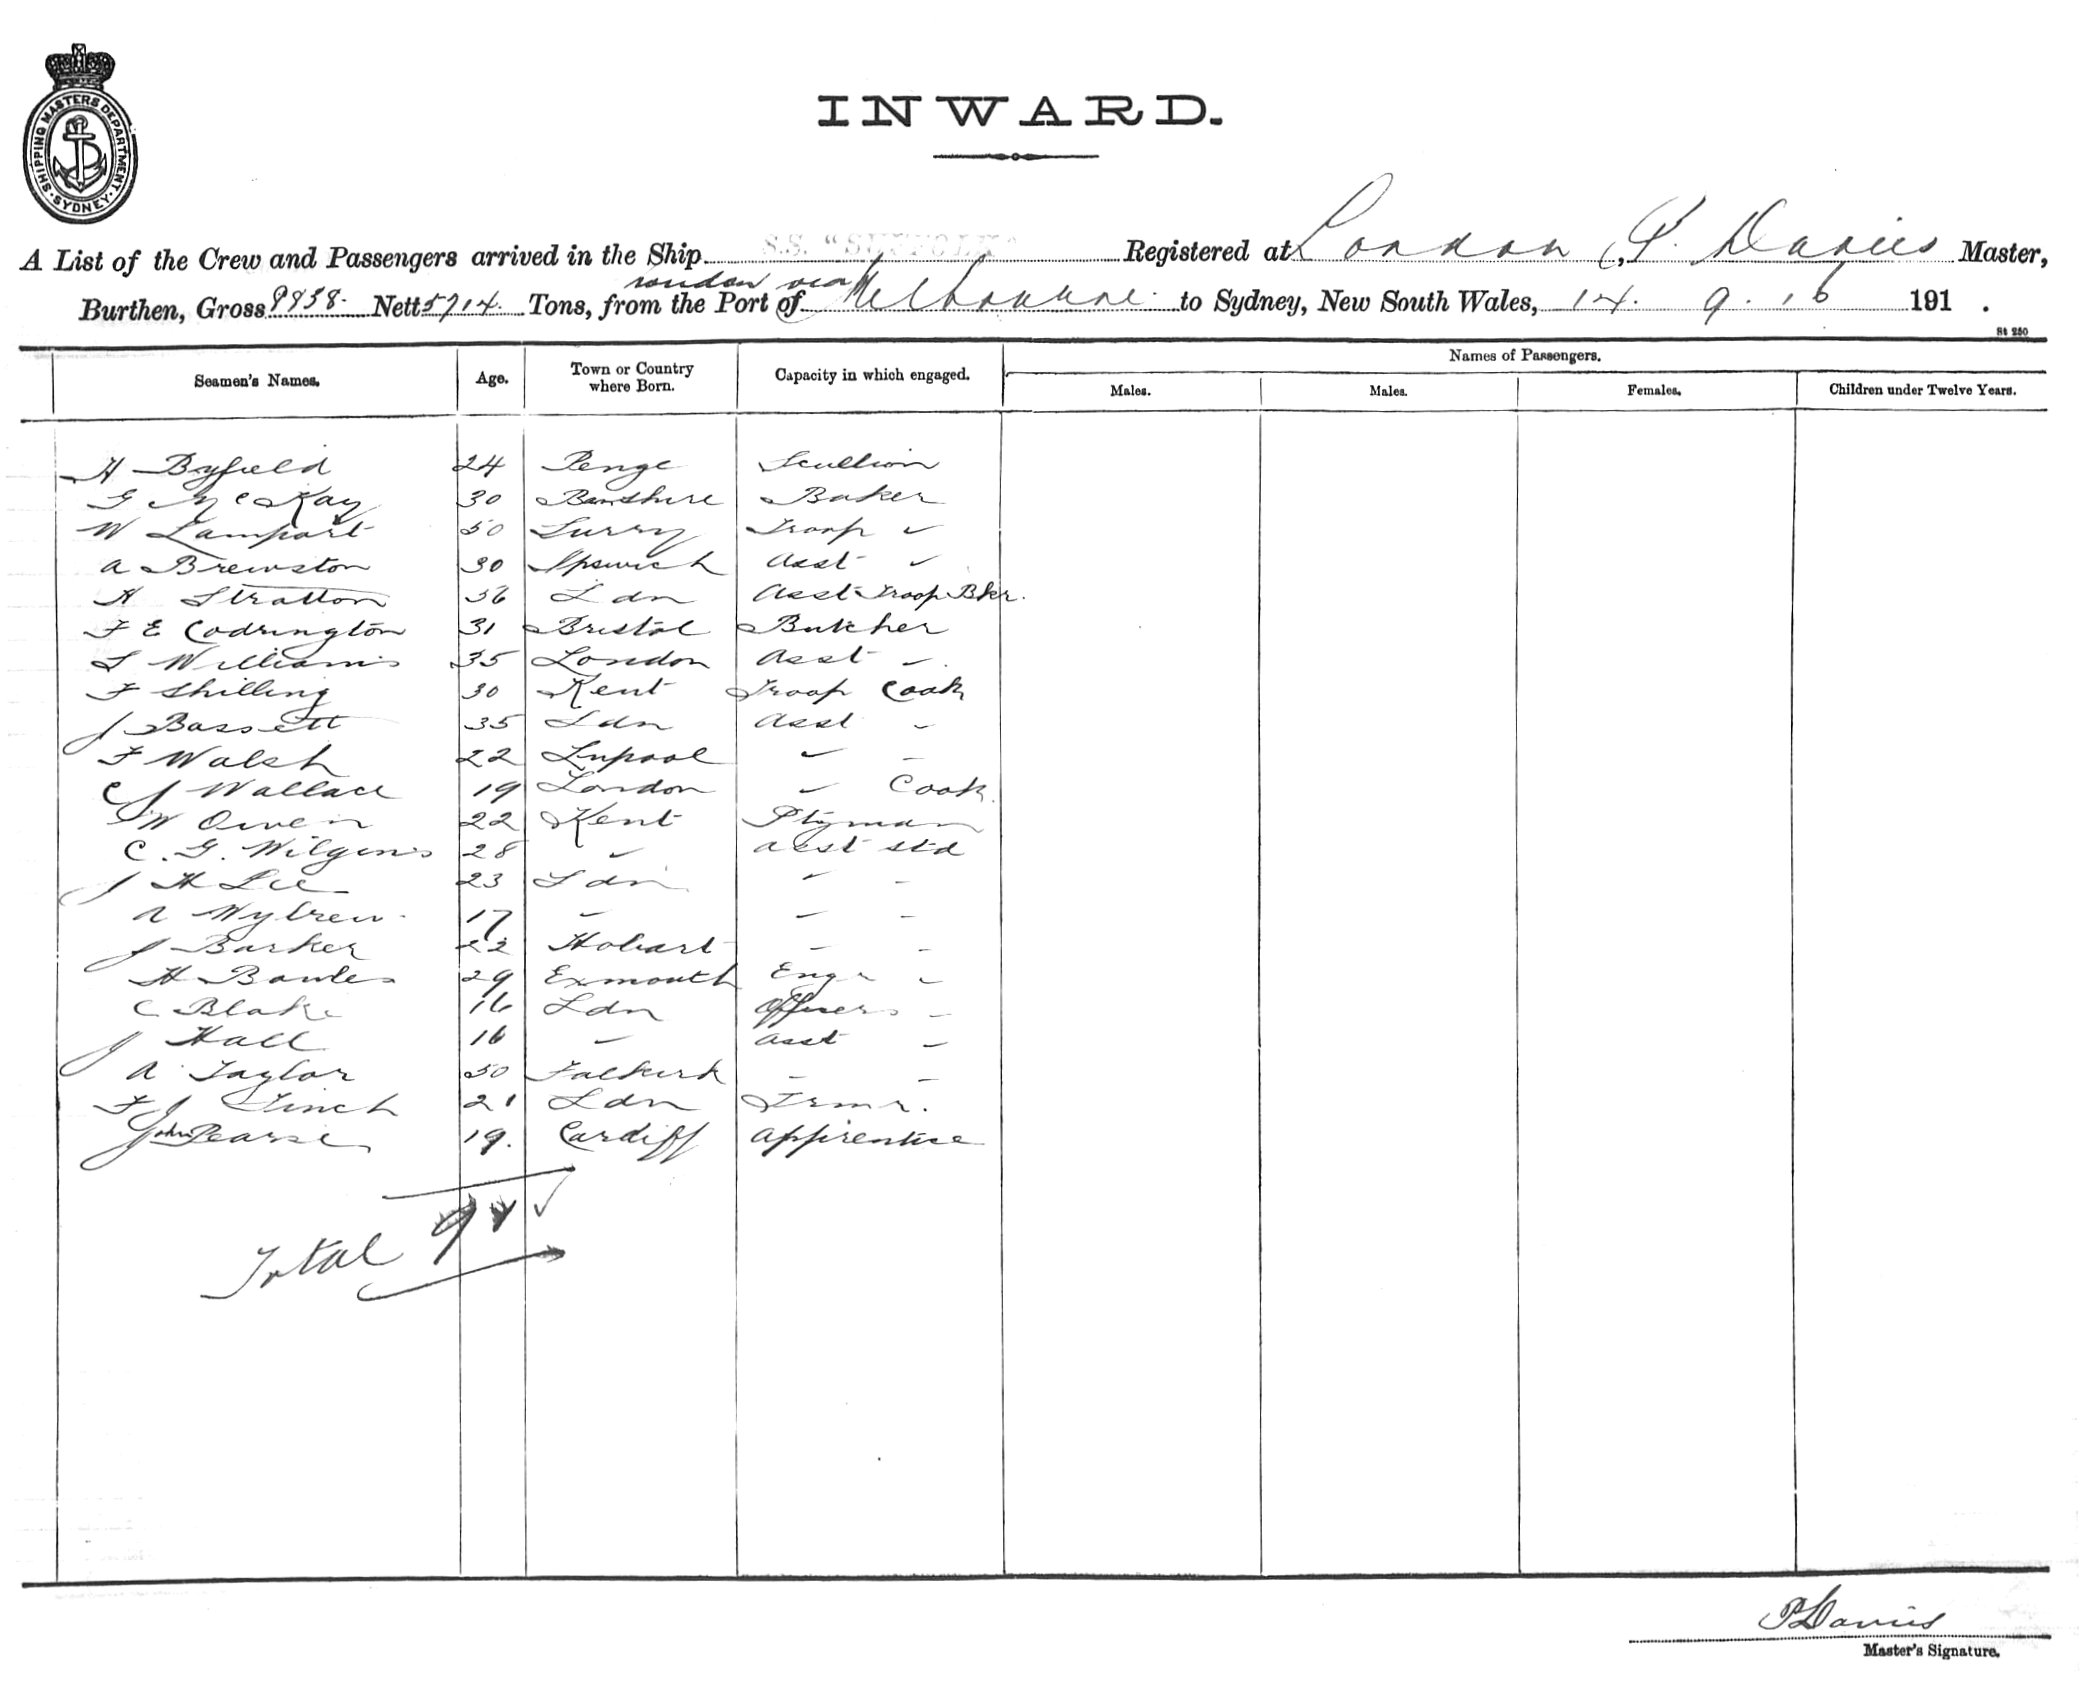 SHIPPING MASTERS DEPARTMENT SYDNEY
INWARD.
A List of the Crew and Passengers arrived in the Ship S.S. "SUFFOLK" Registered at London, P. Davies Master,
london via
Burthen, Gross Nett 5714. Tons, from the Port of Melbourne. to Sydney, New South Wales, 14. 9. 16 191 .
St 250
Seamen's Names. Age. Town or Country where Born. Capacity in which engaged. Names of Passengers.
Males. Males. Females. Children under Twelve Years.
H Byfield 24 Penge Scullion
G McKay 30 Baker
W Lampart 50 Surry Troop "
A Brewston 30 Ipswich Asst "
H Stratton 36 Ldn Asst Troop Bkr.
F E Codrington 31 Bristol Butcher
L Williams 35 London Asst "
F Shilling 30 Kent Troop Cook
J Bassett 35 Ldn Asst "
F Walsh 22 Lvpool " "
C J Wallace 19 London " Cook.
W Owen 22 Kent Ptyman
C. G. 28 " asst std
J H Lee 23 Ldn " "
A Wybrew 17 " " "
J Barker 22 Hobart " "
H Bowles 29 Exmouth Engr "
C Blake 16 Ldn Officers "
J Hall 16 " Asst "
A Taylor 50 Falkirk " "
F J Finch 21 Ldn Trmr.
John Pearse 19. Cardiff Apprentice
Total
P Davies
Master's Signature.